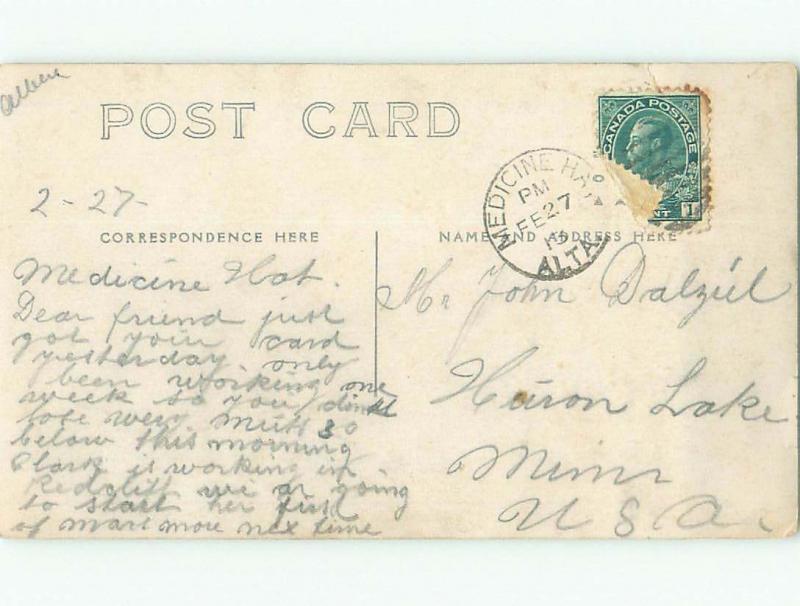 Alben
POST CARD
CANADA POSTAGE
1
MEDICINE HA
PM
FE 27
ALTA
2-27-
CORRESPONDENCE HERE
NAME AND ADDRESS HERE
Medicine Hat.
Dear friend just
got your card
yesterday only
been working one
week so you didnt
lose very much 30
below this morning
Clark is working in
Redcliff we ar going
to start her first
of mart more nex time
Mr John Dalziel
Heron Lake
Minn
U S A.